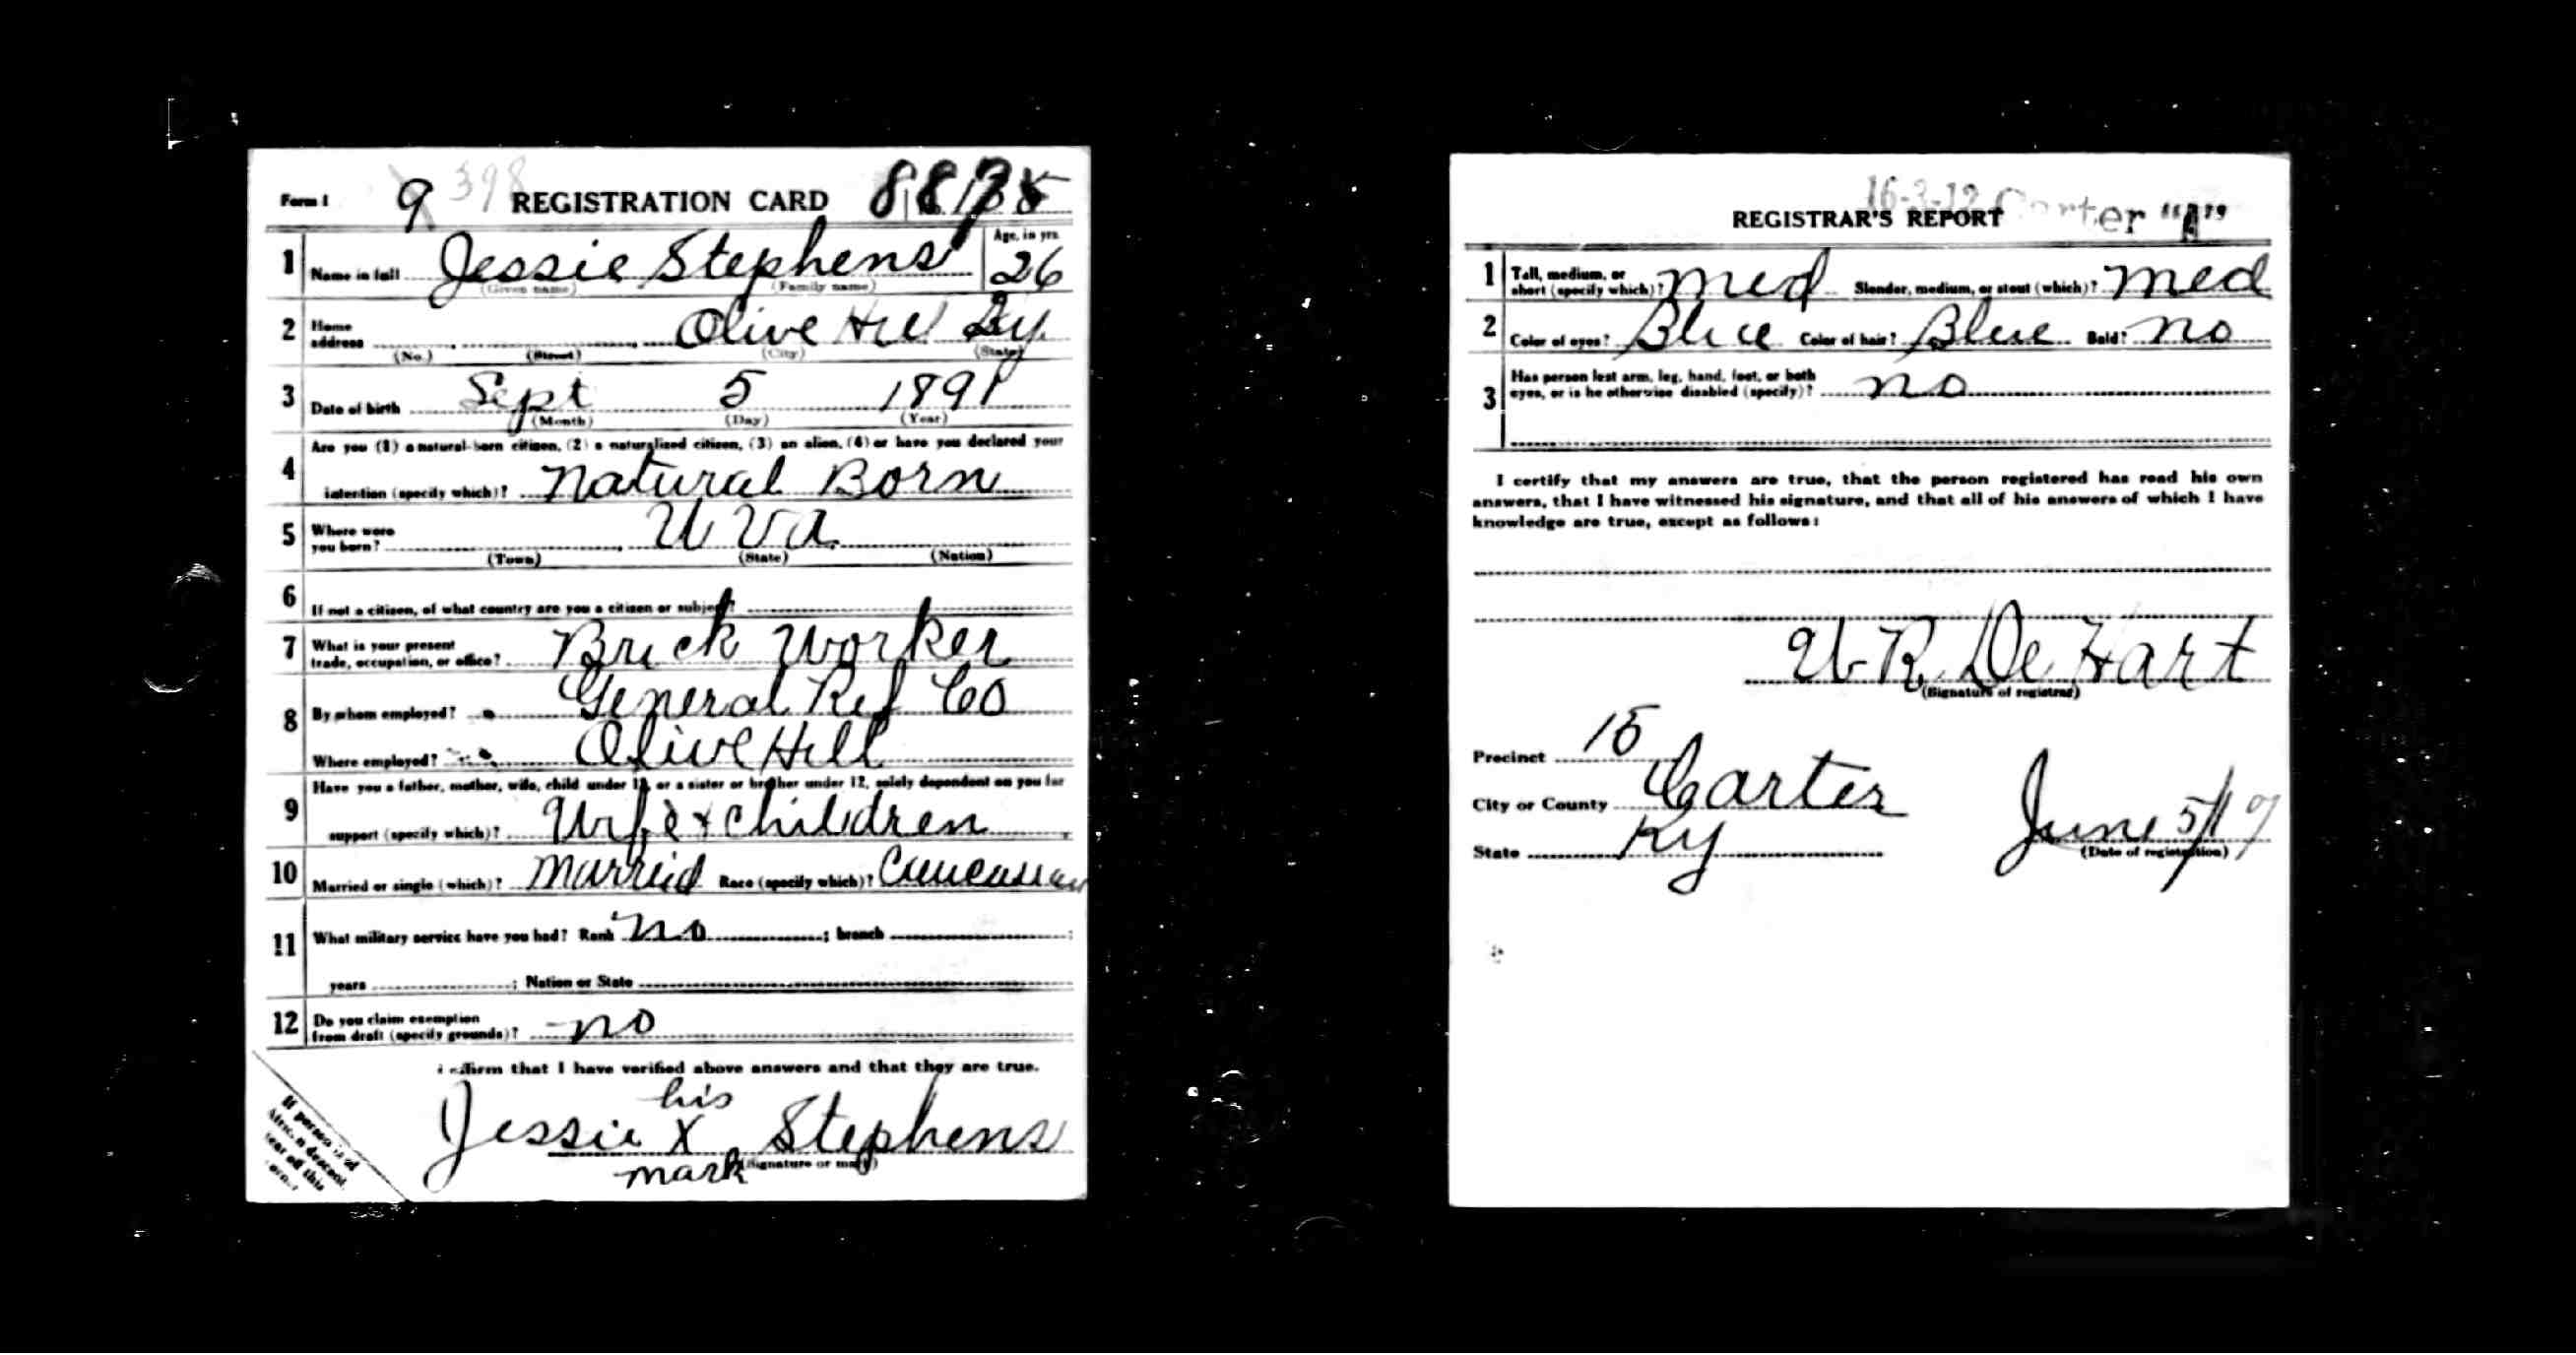 Form 1 9 398 REGISTRATION CARD
1 Name in full Jessie Stephens Age, in yrs. 26
(Given name) (Family name)
2 Home address Olive Hill Ky.
(No.) (Street) (City) (State)
3 Date of birth Sept 5 1891
(Month) (Day) (Year)
Are you (1) a natural-born citizen, (2) a naturalized citizen, (3) an alien, (4) or have you declared your
4 intention (specify which)? Natural Born
5 Where were you born? W Va
(Town) (State) (Nation)
6 If not a citizen, of what country are you a citizen or subject?
7 What is your present trade, occupation, or office? Brick Worker
8 By whom employed? General Ref Co
Where employed? Olive Hill
Have you a father, mother, wife, child under 12, or a sister or brother under 12, solely dependent on you for
9 support (specify which)? Wife & children
10 Married or single (which)? Married Race (specify which)? Caucasian
11 What military service have you had? Rank no ; branch ;
years ; Nation or State
12 Do you claim exemption from draft (specify grounds)? no
affirm that I have verified above answers and that they are true.
his
Jessie X Stephens
mark (Signature or mark)
If person is of
African descent
tear off this
corner
16-3-12 Carter "A"
REGISTRAR'S REPORT
1 Tall, medium, or short (specify which)? med Slender, medium, or stout (which)? med
2 Color of eyes? Blue Color of hair? Blue Bald? no
3 Has person lost arm, leg, hand, foot, or both eyes, or is he otherwise disabled (specify)? no
I certify that my answers are true, that the person registered has read his own
answers, that I have witnessed his signature, and that all of his answers of which I have
knowledge are true, except as follows:
W R De Hart
(Signature of registrar)
Precinct 15
City or County Carter
State Ky
June 5/17
(Date of registration)